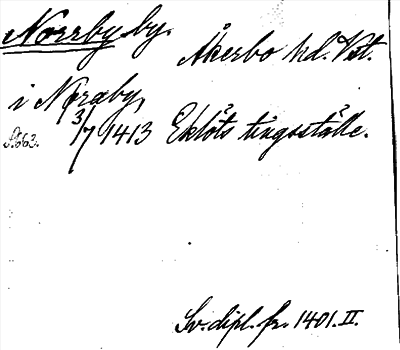 Norrby by. Åkerbo hd. Vst.
i Noræby,
3/7 1413 Eklöts tingsställe.
Sv. dipl. fr. 1401. II.